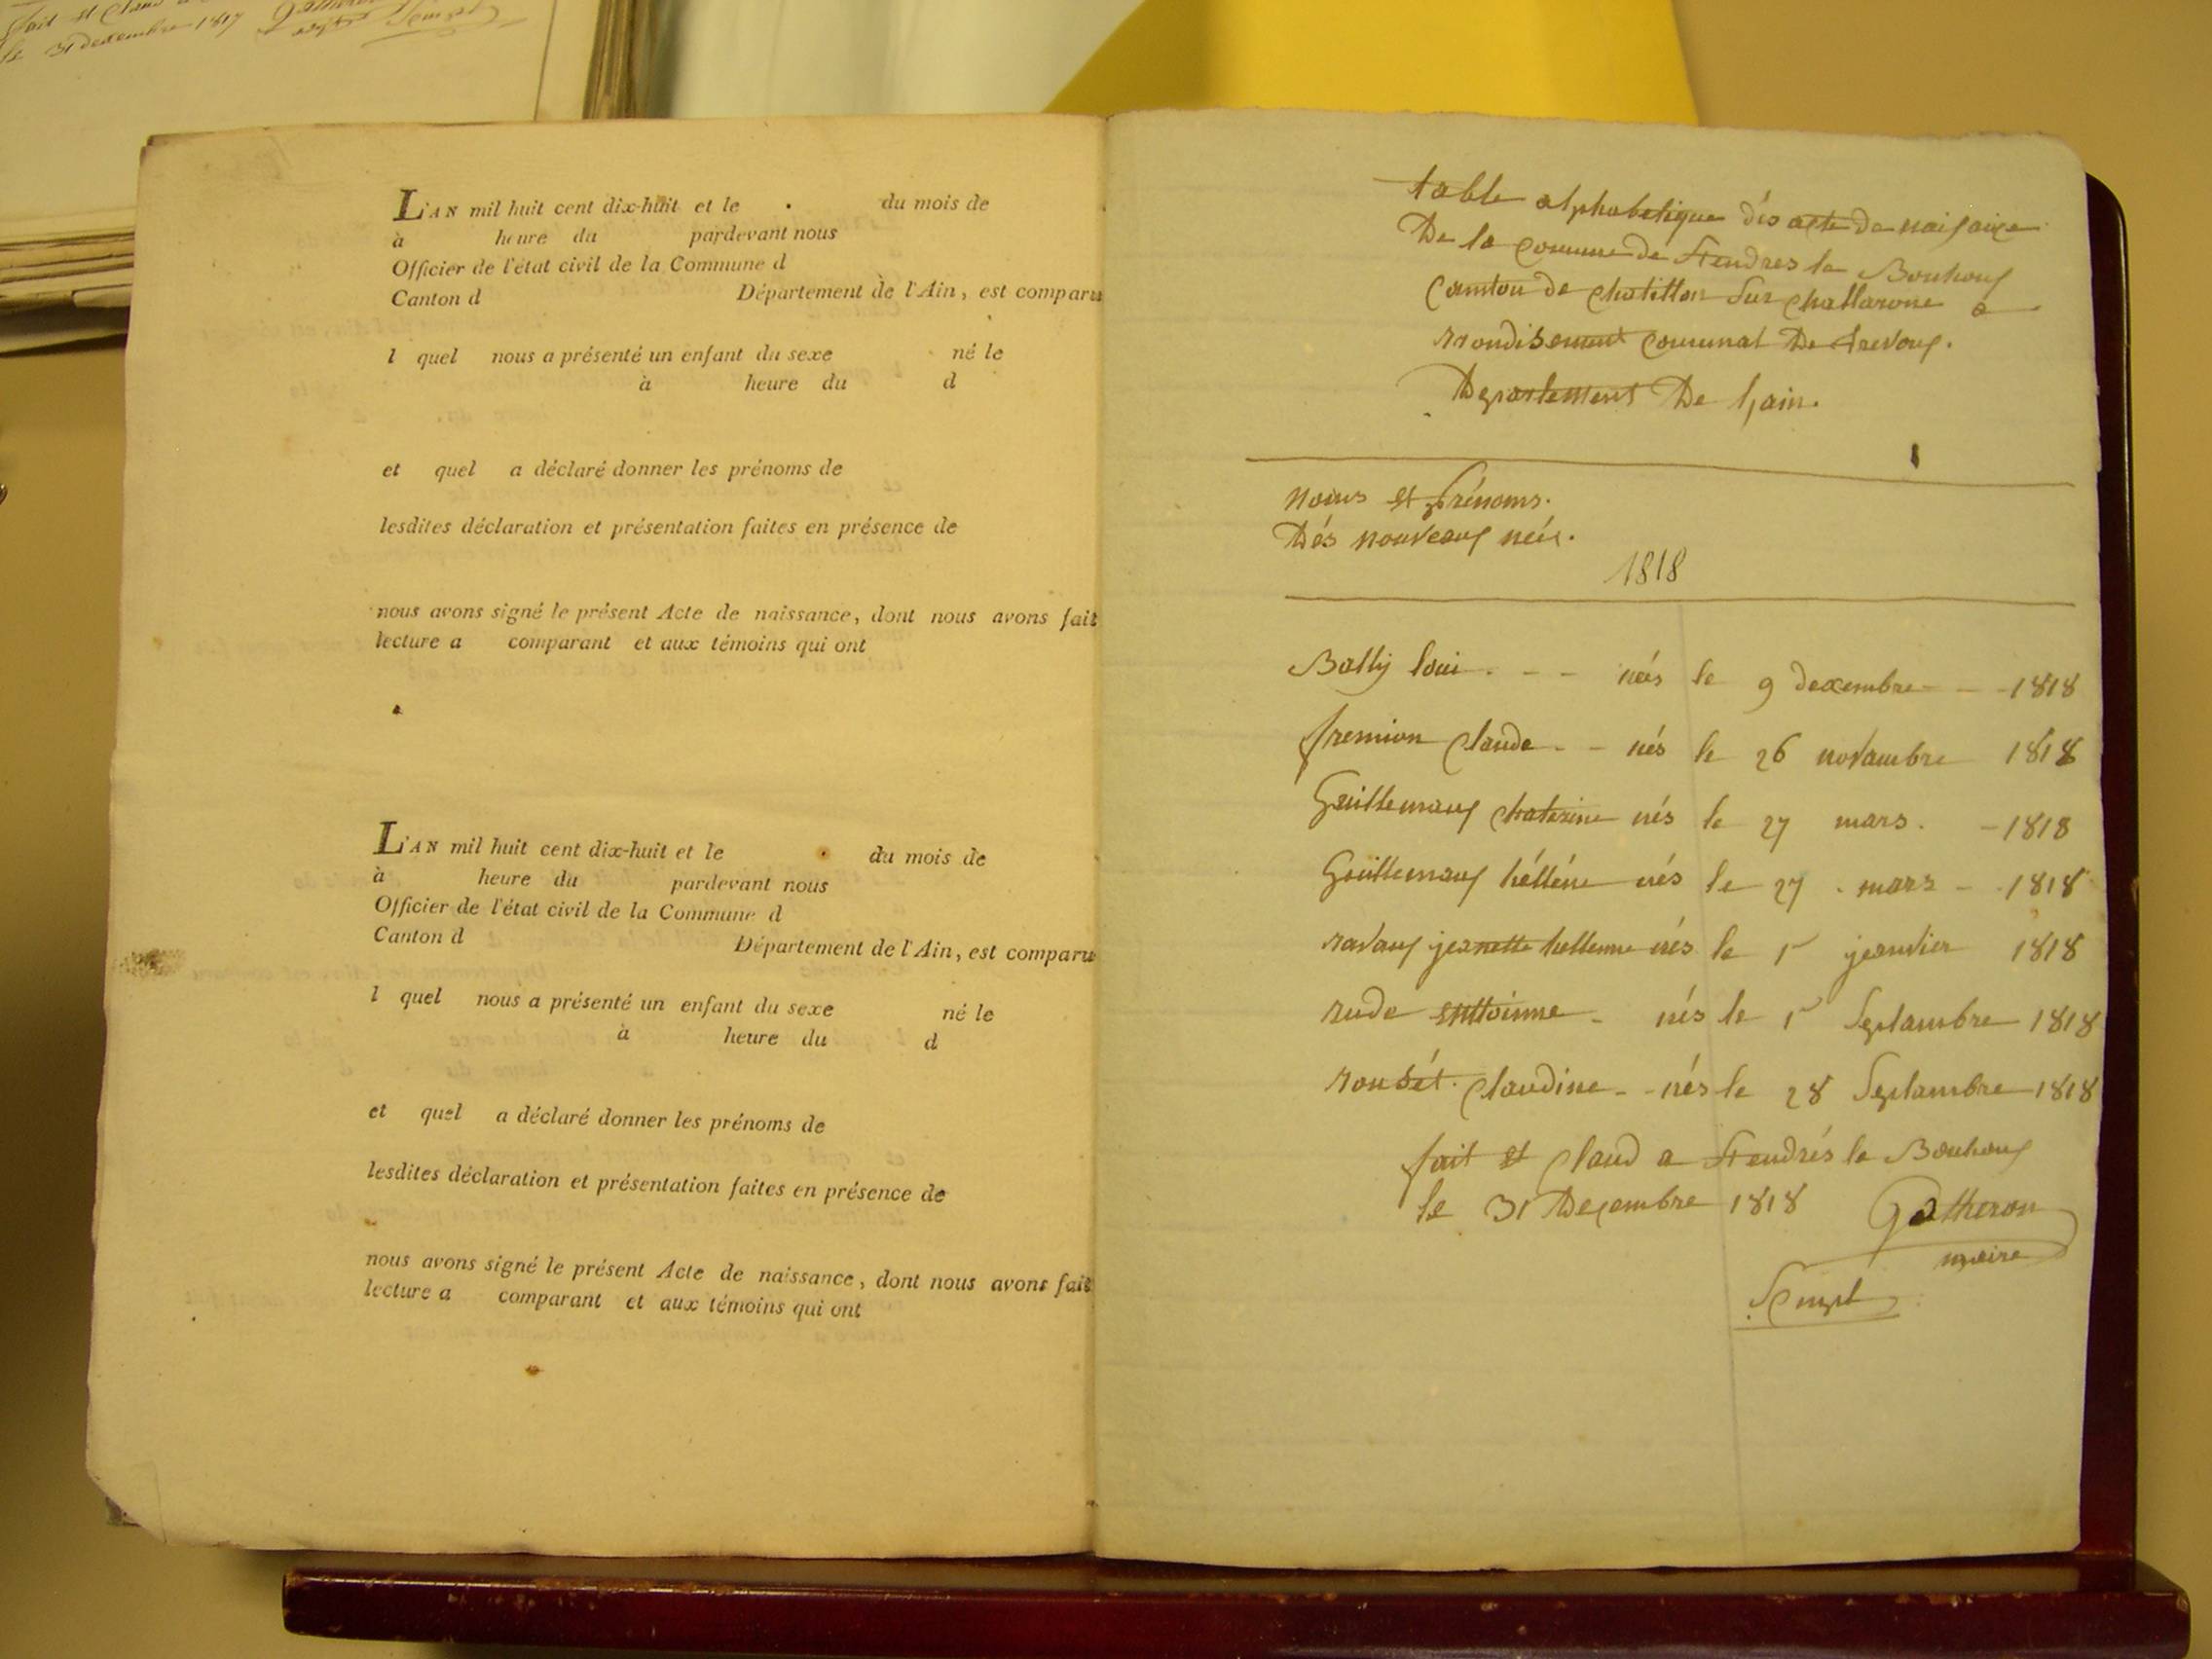 fait et Claud a
le 31 dexembre 1817
L'AN mil huit cent dix-huit et le du mois de
à heure du pardevant nous
Officier de l'état civil de la Commune d
Canton d Département de l'Ain, est comparu
l quel nous a présenté un enfant du sexe né le
à heure du d
et quel a déclaré donner les prénoms de
lesdites déclaration et présentation faites en présence de
nous avons signé le présent Acte de naissance, dont nous avons fait
lecture a comparant et aux témoins qui ont
L'AN mil huit cent dix-huit et le du mois de
à heure du pardevant nous
Officier de l'état civil de la Commune d
Canton d Département de l'Ain, est comparu
l quel nous a présenté un enfant du sexe né le
à heure du d
et quel a déclaré donner les prénoms de
lesdites déclaration et présentation faites en présence de
nous avons signé le présent Acte de naissance, dont nous avons fait
lecture a comparant et aux témoins qui ont
table alphabetique dés acte de naisaixe
De la Comune de St endres le Bouhoux
Camton de Chatillon Sur Challarone a
rrondisement Comunal De trevoux.
Departement De l'ain.
Noms et Prénoms.
Dés nouveaux neés.
1818
Bally loui - - - neés le 9 dexembre - - 1818
fremion Claude - - nés le 26 novambre 1818
Guillemaux Chaterine nés le 27 mars. - 1818
Guillemaux hélléne nés le 27 mars - 1818
ravaux jeanette hellenne nés le 1r jeanvier 1818
rude enttoinne - nés le 1r Septambre 1818
rousét Claudine - - nés le 28 Septambre 1818
fait et Claud a St endrés le Bouhoux
le 31 Decembre 1818 Gatheron
maire